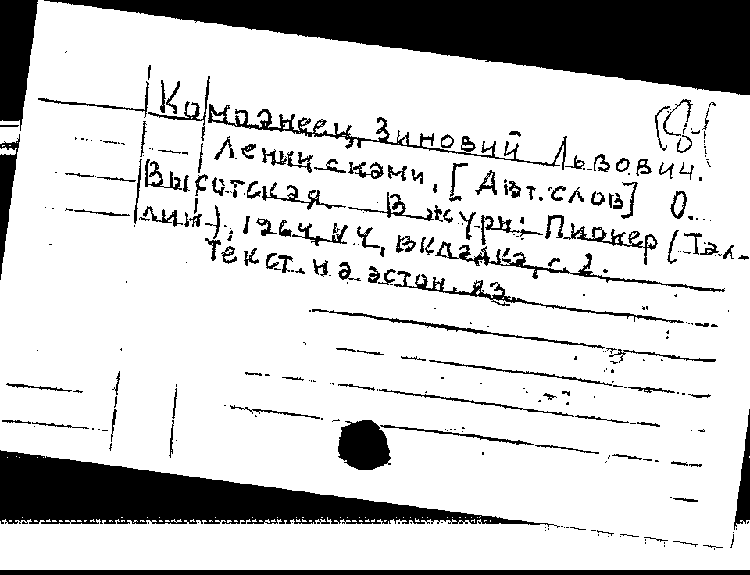 Компанеец, Зиновий Львович.
Ленин с нами. [Авт. слов] О.
Высотская. В журн: Пионер (Тал-
лин), 1964, N 4, вкладка, с. 2.
Текст. на эстон. яз.